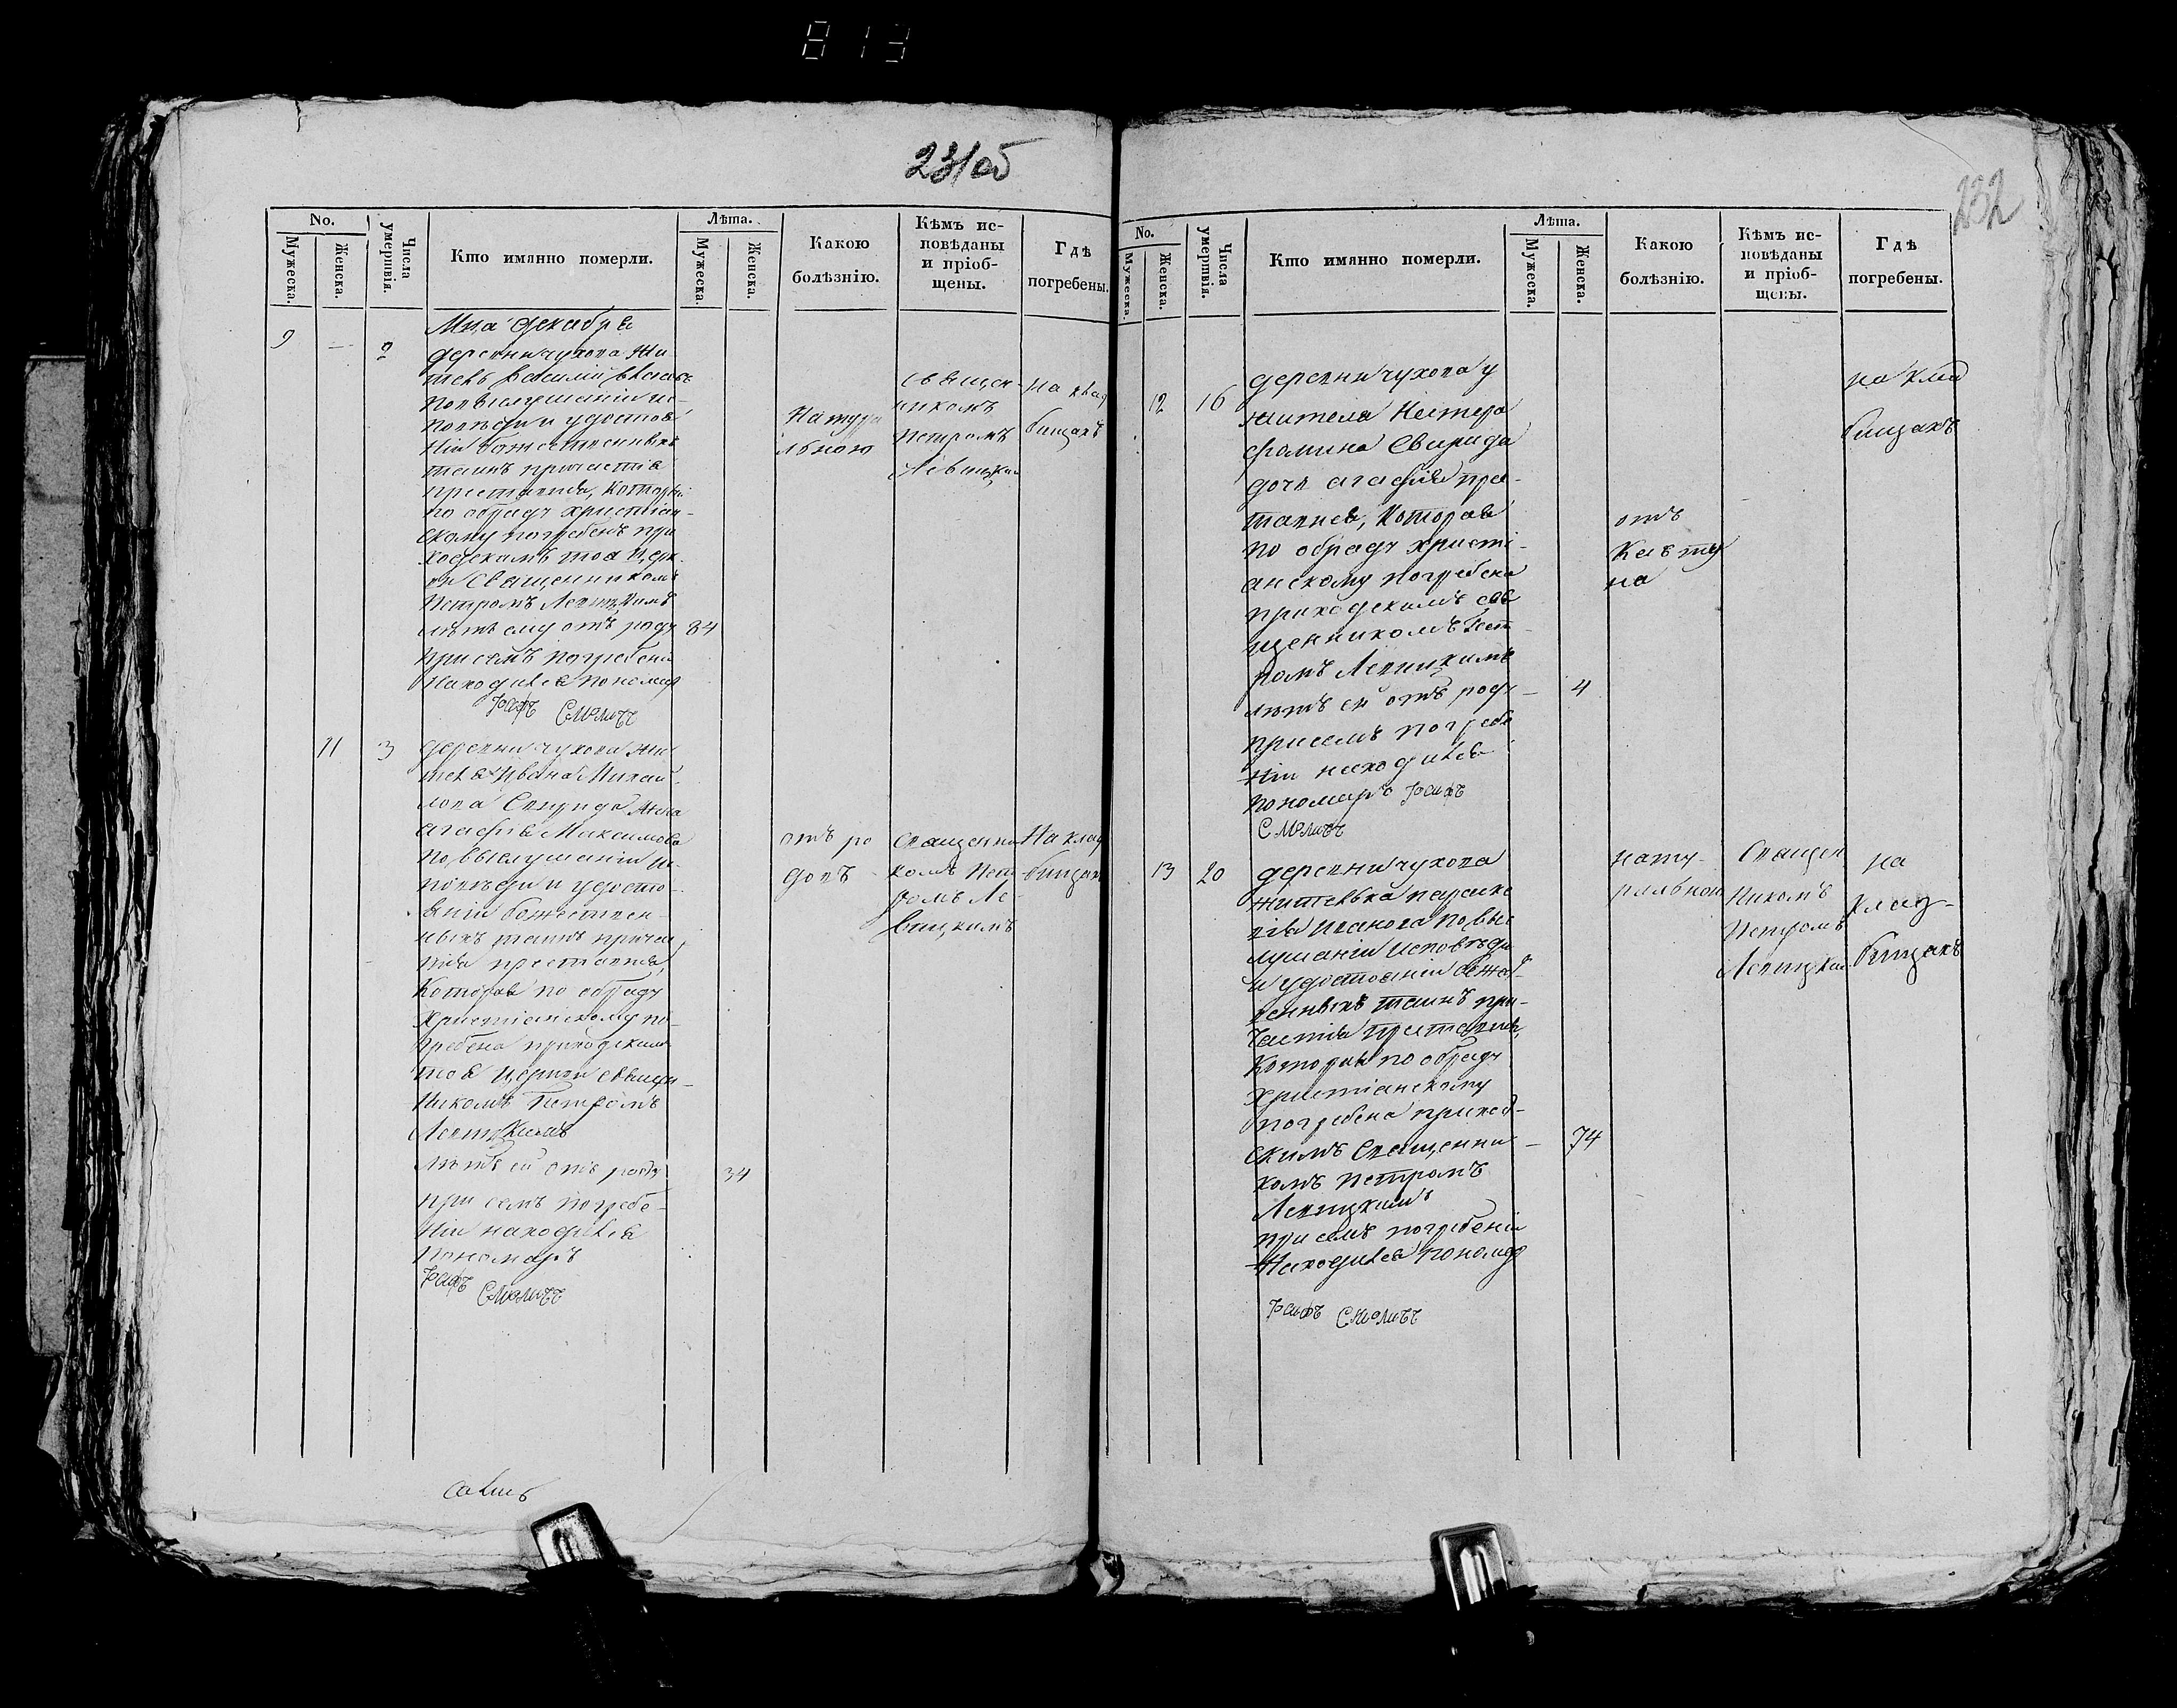 813
231об
232
No.
Мужеска.
Женска.
Числа умертвія.
Кто имянно померли.
Лѣта.
Мужеска.
Женска.
Какою болѣзнію.
Кѣмъ исповѣданы и пріобщены.
Гдѣ погребены.
Мца декабря
9 — 2
деревни чухова жи
тель Василій
по выслушаніи ис-
повѣди и удостоѣ
ніи божественныхъ
таинъ причастія
преставися, которы
по обряду христіан-
скому погребенъ при
ходскимъ тоя церк
ви Священникомъ
Петромъ Левицкимъ
лѣтъ ему отъ роду 84
при семъ погребени
находился пономар
Іосифъ Смоличъ
Натура
льною
священ
никомъ
Петромъ
Левицким
на клад
бищахъ
11 3
деревни чухова жи
теля Ивана Михай
лова Свирида жена
агафія Максимова
по выслушаніи ис-
повѣди и удосто-
яніи божествен-
ныхъ таинъ причас
тія преставися,
Которая по обряду
Христіанскому по-
гребена приходским
тоя церкви священ-
никомъ Петромъ
Левицкимъ
лѣтъ ей отъ роду 34
при семъ погребе-
ніи находился
пономарь
Іосифъ Смоличъ
отъ ро
довъ
священни
комъ Пет
ромъ Ле-
вицкимъ
На клад
бищах
No.
Мужеска.
Женска.
Числа умертвія.
Кто имянно померли.
Лѣта.
Мужеска.
Женска.
Какою болѣзнію.
Кѣмъ исповѣданы и пріобщены.
Гдѣ погребены.
12 16
деревни чухова у
жителя Нестера
фамина Свирида
дочь агафія пре-
тавися, Которая
по обряду христі-
анскому погребена
приходскимъ свя
щенникомъ Пет
ромъ Левицкимъ
лѣтъ ей отъ роду — 4
при семъ погребе
ніи находился
пономарь Іосифъ
Смоличъ
отъ
на
на клад
бищахъ
13 20
деревни чухова
жителька параске
вія иванова по выс
лушаніи исповѣди
и удостояніи божест
венныхъ таинъ при-
частія преставися,
Которая по обряду
Христіанскому
погребена приход-
скимъ Священни — 74
комъ Петромъ
Левицкимъ
при семъ погребеніи
Находился пономар
Іосифъ Смоличъ
нату-
ральною
Священ
никомъ
Петромъ
Левицким
на
клад-
бищахъ